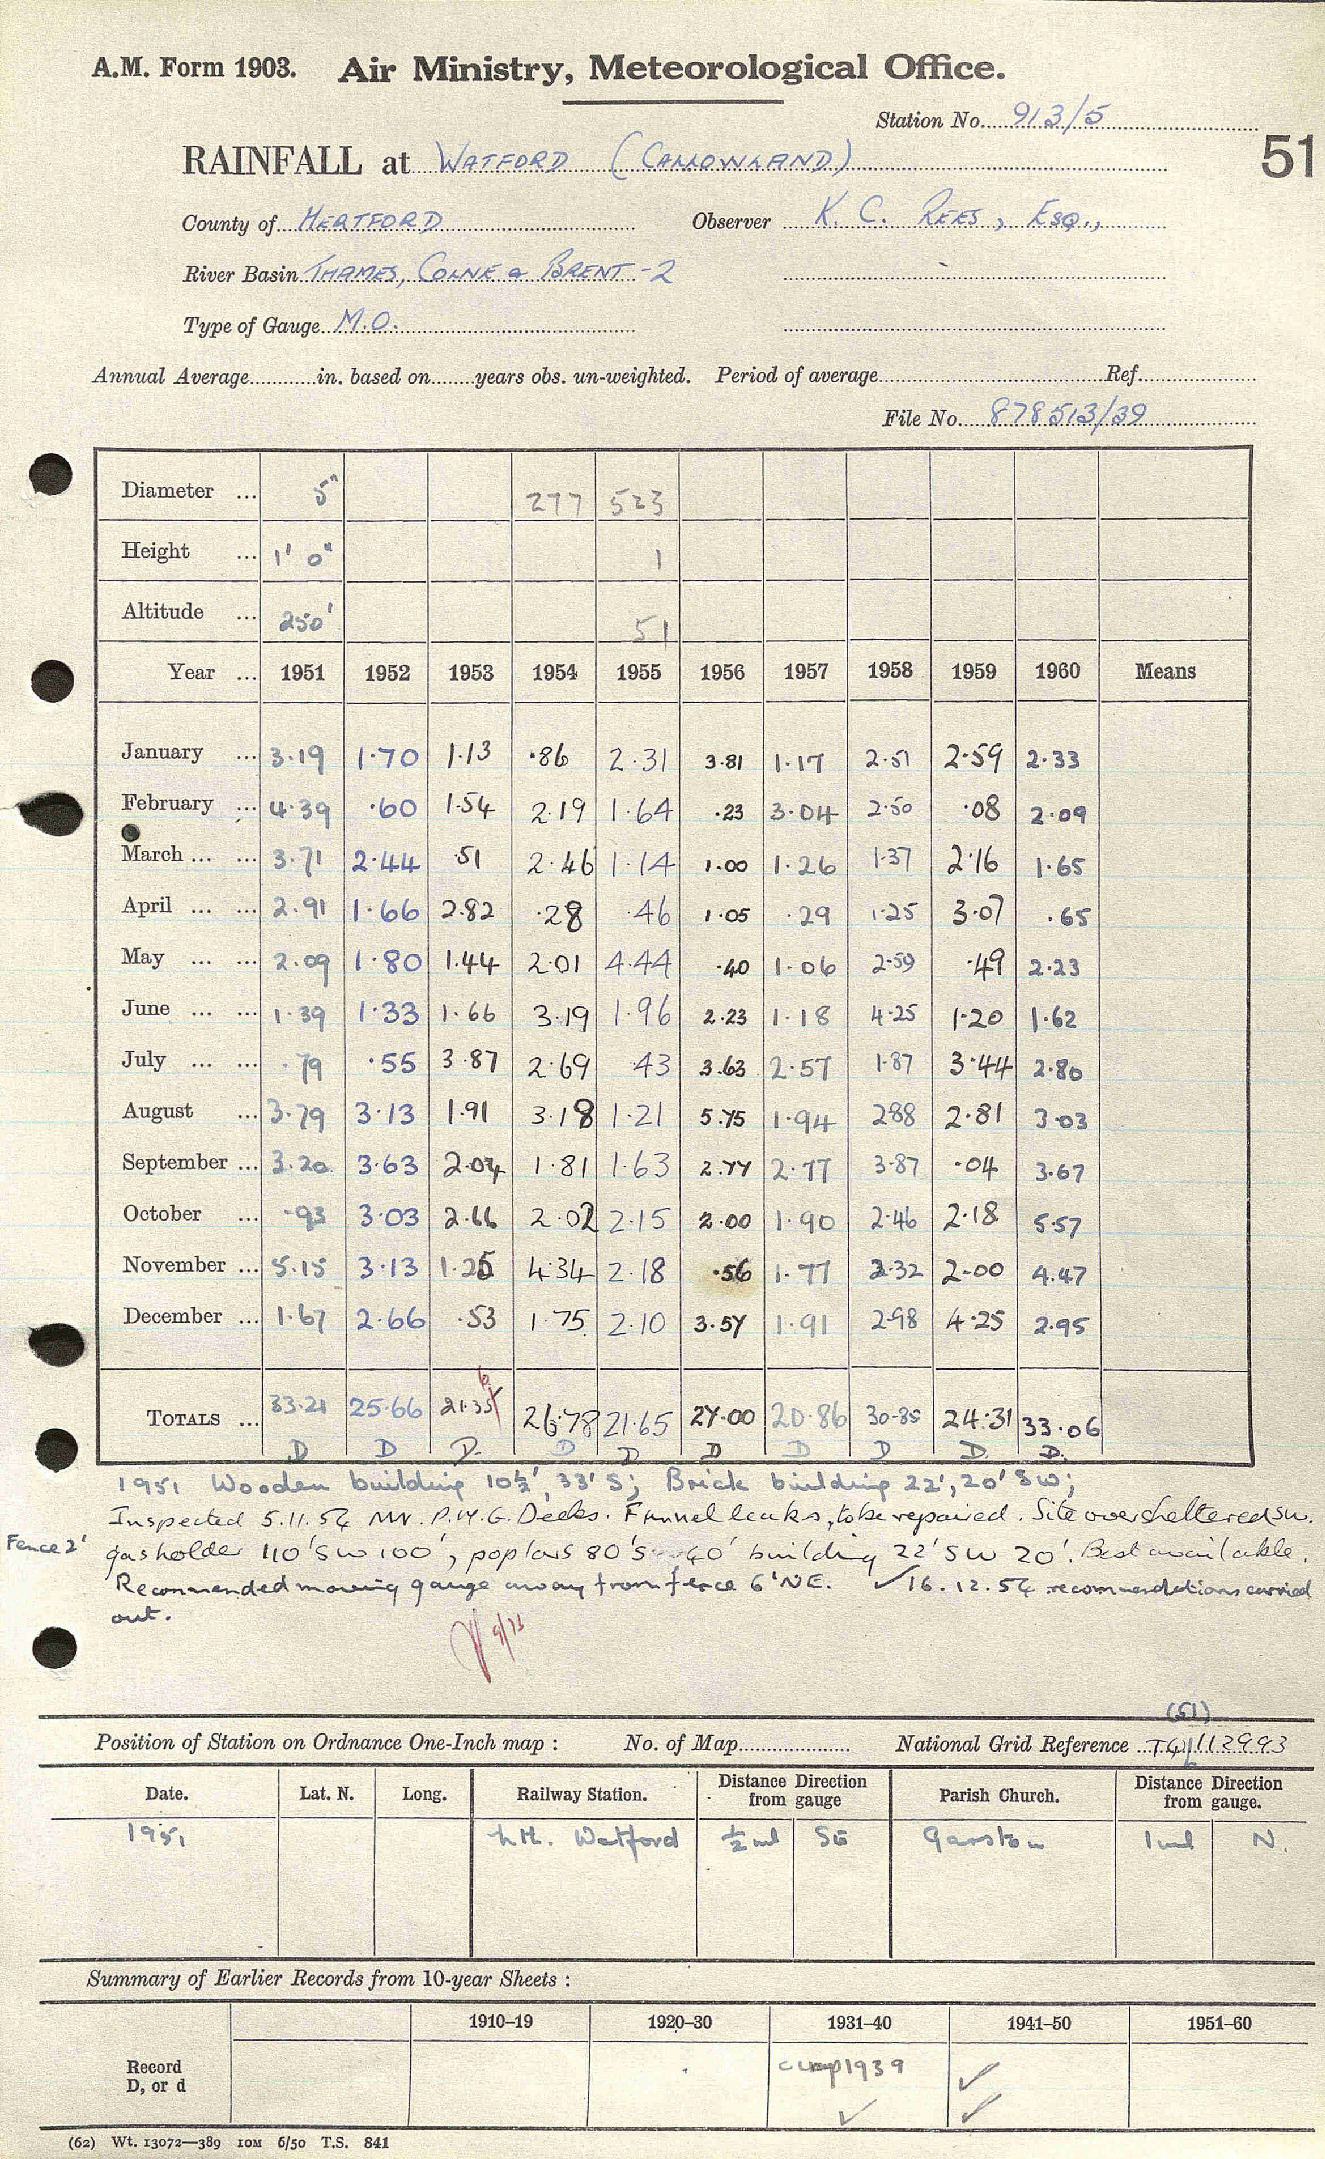 A.M. Form 1903. Air Ministry, Meteorological Office.
Station No. 913/5
51
RAINFALL at WATFORD (CALLOWLAND)
County of HERTFORD Observer K. C. REES, ESQ.,
River Basin THAMES, COLNE & BRENT -2
Type of Gauge M.O.
Annual Average in. based on years obs. un-weighted. Period of average Ref.
File No. 878513/39
Diameter ... 5" 277 523
Height ... 1' 0" 1
Altitude ... 250' 51
Year ... 1951 1952 1953 1954 1955 1956 1957 1958 1959 1960 Means
January ... 3.19 1.70 1.13 .86 2.31 3.81 1.17 2.51 2.59 2.33
February ... 4.39 .60 1.54 2.19 1.64 .23 3.04 2.50 .08 2.09
March ... ... 3.71 2.44 .51 2.46 1.14 1.00 1.26 1.37 2.16 1.65
April ... ... 2.91 1.66 2.82 .28 .46 1.05 .29 1.25 3.07 .65
May ... ... 2.09 1.80 1.44 2.01 4.44 .40 1.06 2.59 .49 2.23
June ... ... 1.39 1.33 1.66 3.19 1.96 2.23 1.18 4.25 1.20 1.62
July ... ... .79 .55 3.87 2.69 .43 3.63 2.57 1.87 3.44 2.80
August ... 3.79 3.13 1.91 3.18 1.21 5.75 1.94 2.88 2.81 3.03
September ... 3.20 3.63 2.04 1.81 1.63 2.77 2.77 3.87 .04 3.67
October ... .93 3.03 2.66 2.02 2.15 2.00 1.90 2.46 2.18 5.57
November ... 5.15 3.13 1.25 4.34 2.18 .56 1.77 2.32 2.00 4.47
December ... 1.67 2.66 .53 1.75 2.10 3.57 1.91 2.98 4.25 2.95
6
TOTALS ... 33.21 25.66 21.35 26.78 21.65 27.00 20.86 30.85 24.31 33.06
D D D. D D D D D D. D.
1951 Wooden building 10½', 33' S; Brick building 22', 20' SW;
Inspected 5.11.54 Mr. P.H.G. Deeks. Funnel leaks, to be repaired. Site oversheltered SW.
Fence 2' gasholder 110' SW 100', poplars 80' S 40' building 22' SW 20'. Best available.
Recommended moving gauge away from fence 6' NE. ✓ 16.12.54 recommendations carried
out.
(51)
Position of Station on Ordnance One-Inch map : No. of Map National Grid Reference TQ/112993
Date. Lat. N. Long. Railway Station. Distance from gauge Direction Parish Church. Distance from gauge. Direction
1951 Watford ½ ml SE Garston 1 ml N.
Summary of Earlier Records from 10-year Sheets :
1910–19 1920–30 1931–40 1941–50 1951–60
Record D, or d 1939 ✓
✓ ✓
(62) Wt. 13072—389 10M 6/50 T.S. 841